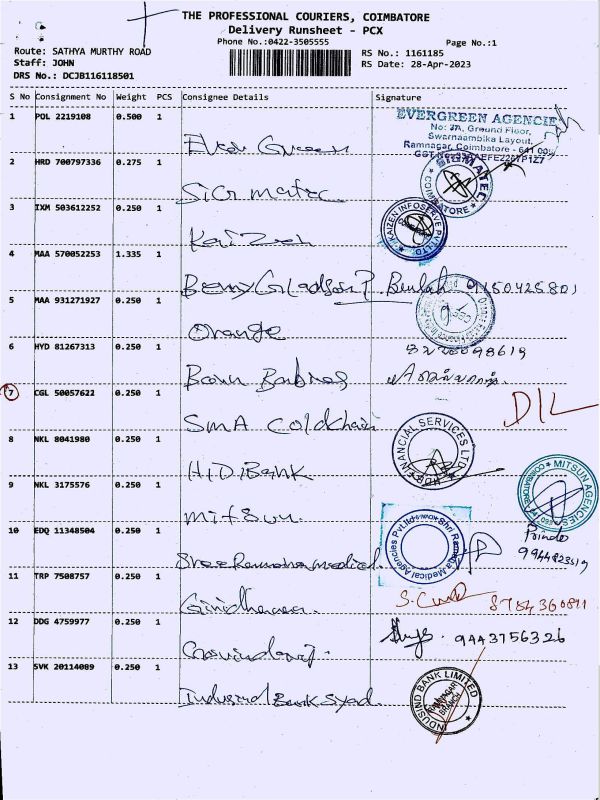 THE PROFESSIONAL COURIERS, COIMBATORE
Delivery Runsheet - PCX
Phone No.:0422-3505555
Page No.:1
Route: SATHYA MURTHY ROAD
RS No.: 1161185
Staff: JOHN
RS Date: 28-Apr-2023
DRS No.: DCJB116118501
S No Consignment No Weight PCS Consignee Details Signature
1 POL 2219108 0.500 1
EVERGREEN AGENCIE
No: 37A, Ground Floor,
Swarnaambika Layout,
Ramnagar, Coimbatore - 641 009
Green
2 HRD 700797336 0.275 1
COIMBATORE
Sigmatec
3 IXM 503612252 0.250 1
KAIZEN INFOSERVE PVT LTD
Kaizen
4 MAA 570052253 1.335 1
Beulah 9150425801
5 MAA 931271927 0.250 1
Orange
6 HYD 81267313 0.250 1
7 CGL 50057622 0.250 1
DIL
SMA Coldchain
8 NKL 8041980 0.250 1
FINANCIAL SERVICES LTD
Bank
9 NKL 3175576 0.250 1
MITSUN AGENCIES
COIMBATORE
Mitsun
10 EDQ 11348504 0.250 1
Shri Ramana Medical Agencies Pvt Ltd
Sree Ramana medical
11 TRP 7508757 0.250 1
8784360811
12 DDG 4759977 0.250 1
9443756326
Govindaraj
13 SVK 20114089 0.250 1
INDUSIND BANK LIMITED
RAMNAGAR
BRANCH
Indusind Bank Syad